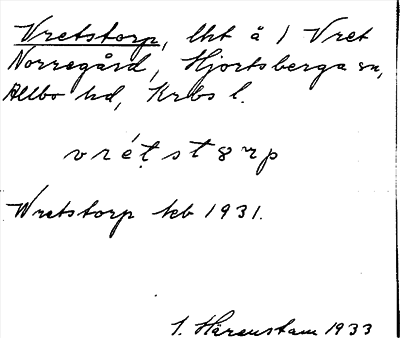 Vretstorp, lht å 1 Vret
Norregård, Hjortsberga sn,
Allbo hd, Krbs l.
vrétstɞrp
Wretstorp kb 1931.
S. Härenstam 1933